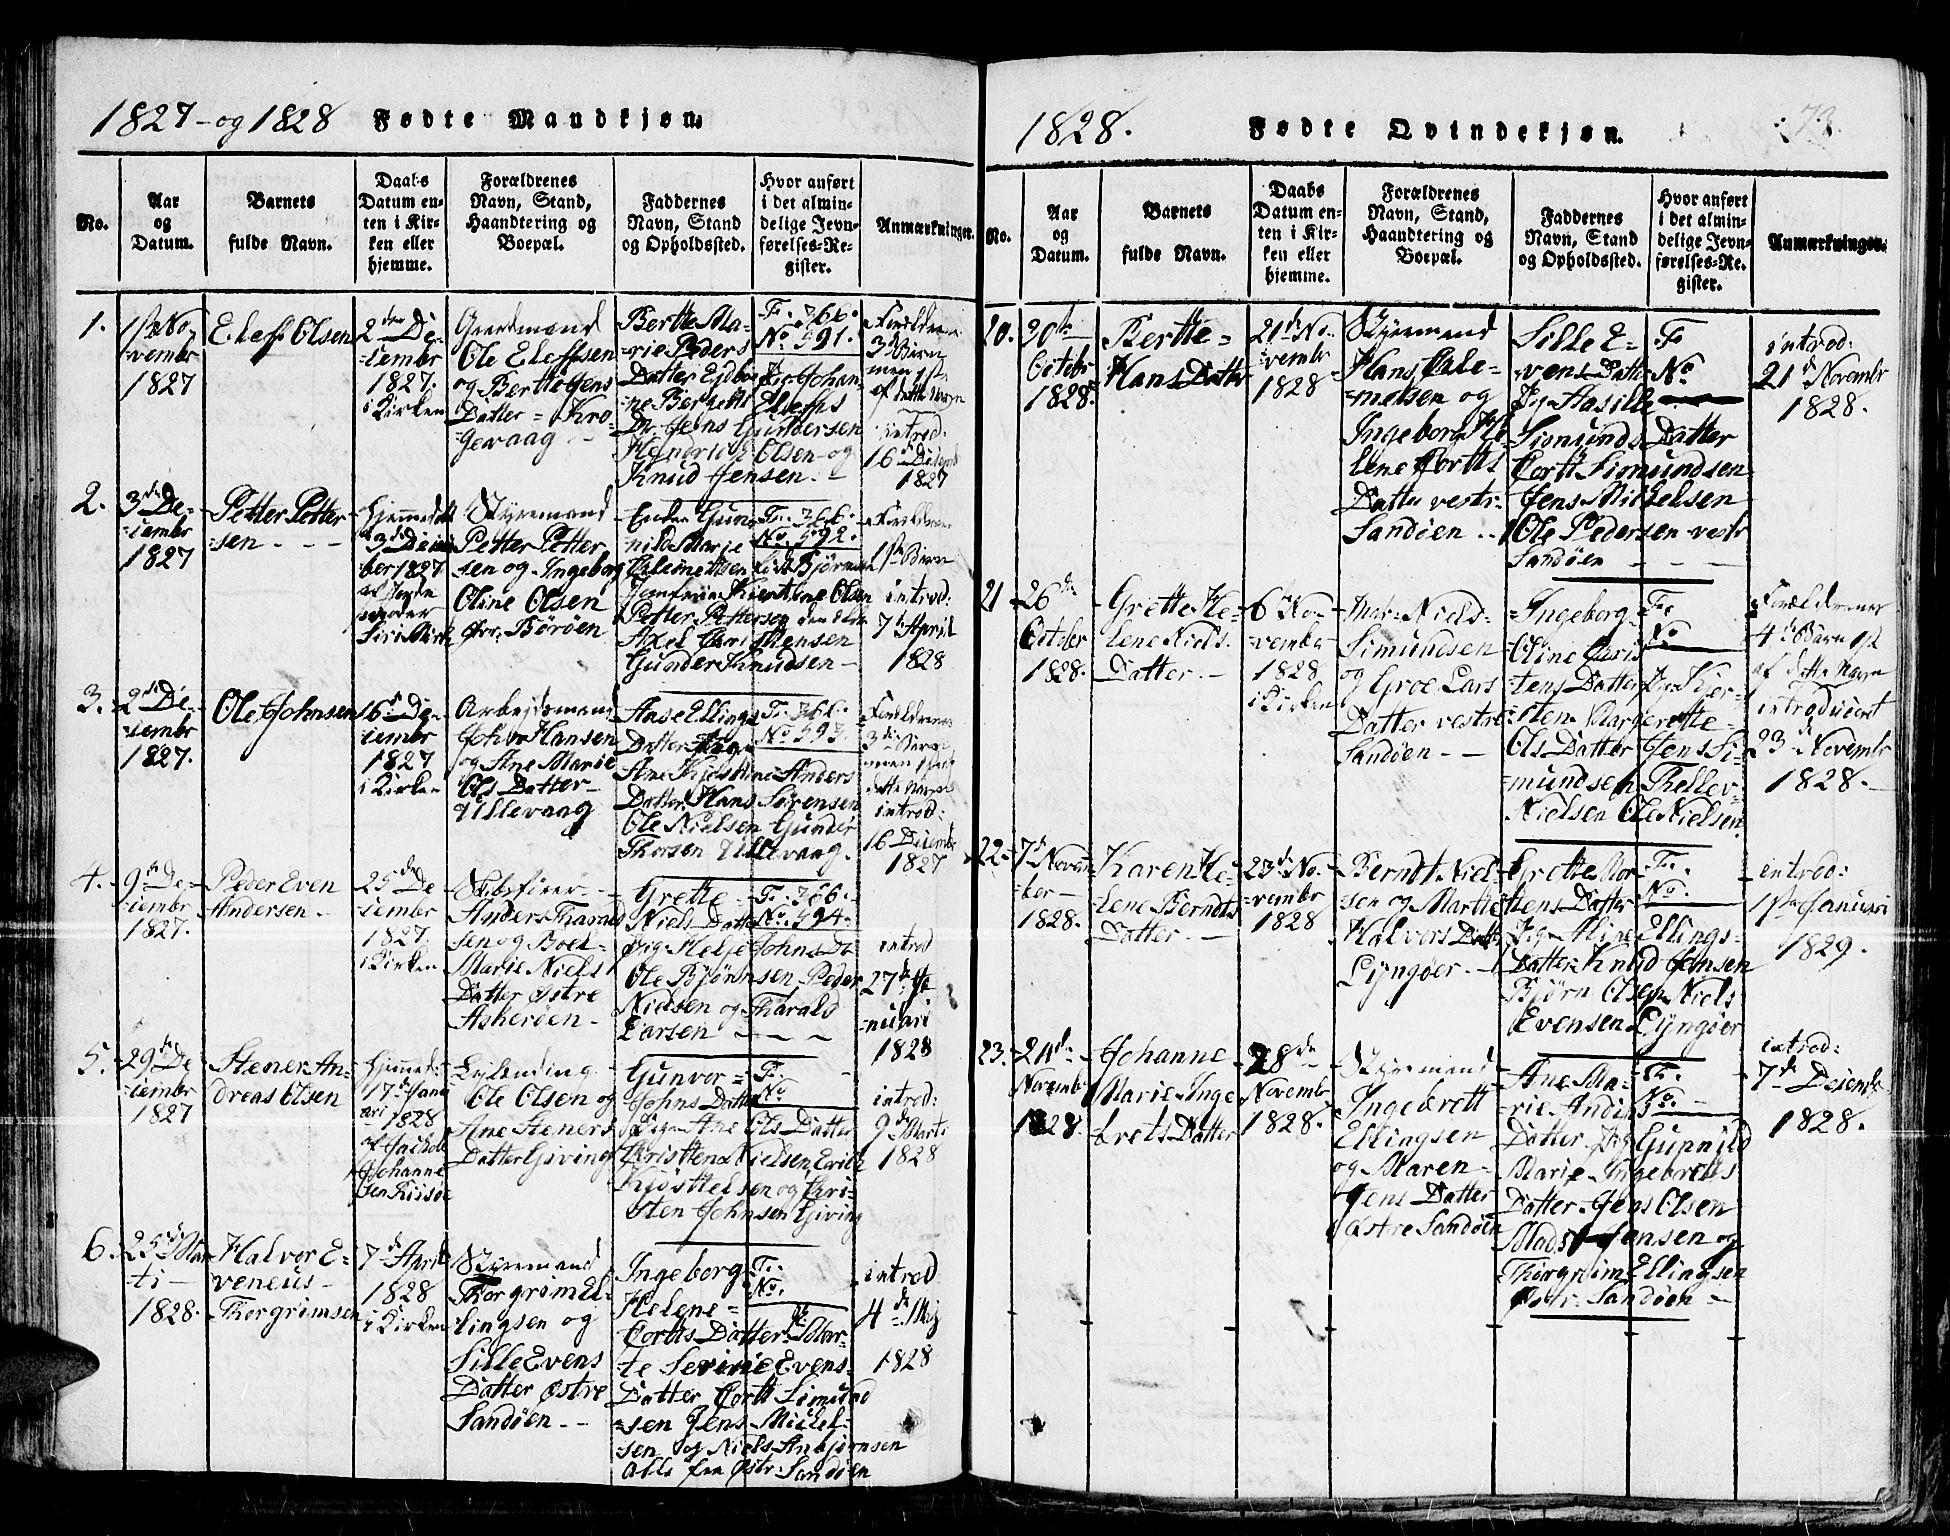 1827 - og 1828 Fødte Mandkjøn.
No.
Aar
og
Datum.
Barnets
fulde Navn.
Daabs
Datum en-
ten i Kir-
ken eller
hjemme.
Forældrenes
Navn, Stand,
Haandtering og
Boepæl.
Faddernes
Navn, Stand
og Opholdssted.
Hvor anført
i det almin-
delige Jevn-
førelses-Re-
gister.
Anmærkninger.
1.
1ste No-
vembr
1827
Eleff Olsen
2den De-
cembr
1827.
i Kirken
Gaardmand
Ole Eleffsen
og Berthe Jens
Datter - Kro-
gevaag
Berthe Ma-
rie Peders
Datter Eidboe
ne Bergette Eleffs
Dr. Jens Gundersen
Hendrich Olsen og
Knud Jensen
F. 366.
No. 591.
Forældrenes
3de Barn
men 1st
af dette Navn
introd:
16de Decemb
1827
2.
3de De-
cembr
1827
Petter Petter-
sen
Hjemmedøbt
3de Decem-
ber 1827
Styremand
Petter Petter
sen og Ingeborg
Oline Olsen
Børøen
Enke Gun-
nild Marie
Jomfrue Kirstine Olsen
Petter Pettersen den eldre
Axel Christensen
Gunder Knudsen
F. 366.
No. 592.
Forældrenes
1ste Barn
introd:
7de April
1828
3.
2de De-
cembr
1827.
Ole Johnsen
16de De-
cembr
1827
i Kirken
Arbejdsmand
John Hansen
og Ane Marie
Ols Datter
Ullevaag
Anse Ellings
Datter Pige
Ane Kjestine Anders
Datter Hans Sørensen
Ole Nielsen Gunder
Thorsen Ullevaag.
F. 366.
No. 593.
Forældrenes
3de Barn
men 1ste af
dette Navn
introd:
16 Decembr
1827
4.
9de De-
cembr
1827.
Peder Even
Andersen
25de De
cembr
1827
i Kirken
Skibsfører
Anders Tharald
sen og Boel
Marie Niels
Datter østre
Askerøen
Grethe
Niels Datter
Pige Helje Johns Dr
Ole Bjørnsen Peder
Nielsen og Tharald
Larsen
F. 366.
No. 594.
introd
27de Ja
nuari
1828
5.
29de De
cembr
1827
Stener An-
dreas Olsen
Hjemmed:
17de Janu
ari 1828
af Jachob
Johanne
sen Riisøe
Ole Olsen og
Ane Steners
Datter Giving
Gunvor
Johns Datter
Pige Ane Ols Datter
Christten Nielsen Erich
Kjøsttelsen og Chri-
sten Johnsen Giving
F.
No
introd:
9de Marti
1828
6.
25de Mar
ti
1828.
Halvor E-
veneus
Thorgrimsen
7de April
1828
i Kirken
Styremand
Thorgrim El-
lingsen og
Sille Evens
Datter østre
Sandøen
Ingeborg
Helene
Cortts Datter Pige Mar-
te Sevrine Evens
Datter Cortt Simund
sen Jens Mickel-
sen og Niels Anbjørnsen
alle fra østr: Sandøen
F.
No.
introd
4de Mij
1828
1828. Fødte Qvindekjøn. 73.
No.
Aar
og
Datum.
Barnets
fulde Navn.
Daabs
Datum en-
ten i Kir-
ken eller
hjemme.
Forældrenes
Navn, Stand,
Haandtering og
Boepæl.
Faddernes
Navn, Stand
og Opholdssted.
Hvor anført
i det almin-
delige Jevn-
førelses-Re-
gister.
Anmærkninger.
20.
20de
Octobr
1828.
Berthe
Hans Datter
21de No-
vembr
1828
Styremand
Hans
melsen og
Ingeborg He-
lene Cortts
Datter vestr:
Sandøen
Sille E-
vens Datter
Pige Aasille
Simunds Datter
Cortt Simundsen
Jens Mickelsen
Ole Pedersen vestr
Sandøen
F
No
introd:
21de Novembr
1828.
21
26de
October
1828.
Grette He-
lene Niels
Datter
6te No-
vember
1828
i Kirken
Niels
Simundsen
og Groe Lars
Datter vestre
Sandøen
Ingeborg
Oline Chris
tens Datter Pige Kjer-
sten Margrette
Ols Datter Jens Si-
mundsen Thellev
Nielsen Ole Nielsen
F.
No
Forældrenes
4de Barn 1st
af dette Navn
introducert
23de Novembr
1828.
22.
7de Novem
ber
1828.
Karen He-
lene Berndts
Datter
23de No-
vembr
1828
Berndt Niel-
sen og Marthe
Halvors Datter
Lyngøer
Grethe Mor
tens Datter
Pige Aline Ellings
Datter Knud Jensen
Bjørn Olsen Niels
Evensen Lyngøer
F.
No.
introd:
1ste Januari
1829.
23.
Novembr
1828.
Johanne
Marie Inge
brets Datter
28de
Novembr
1828.
Styremand
Ingebrett
Ellingsen
og Maren
Jens Datter
østre Sandøen
Ane Ma-
rie Anders
Datter Pige Gunnild
Marie Ingebretts
Datter Jens Olsen
Mads Jensen og
Thorgrim Ellingsen
østr: Sandøen
F.
No.
introd:
7de Decemb
1828.